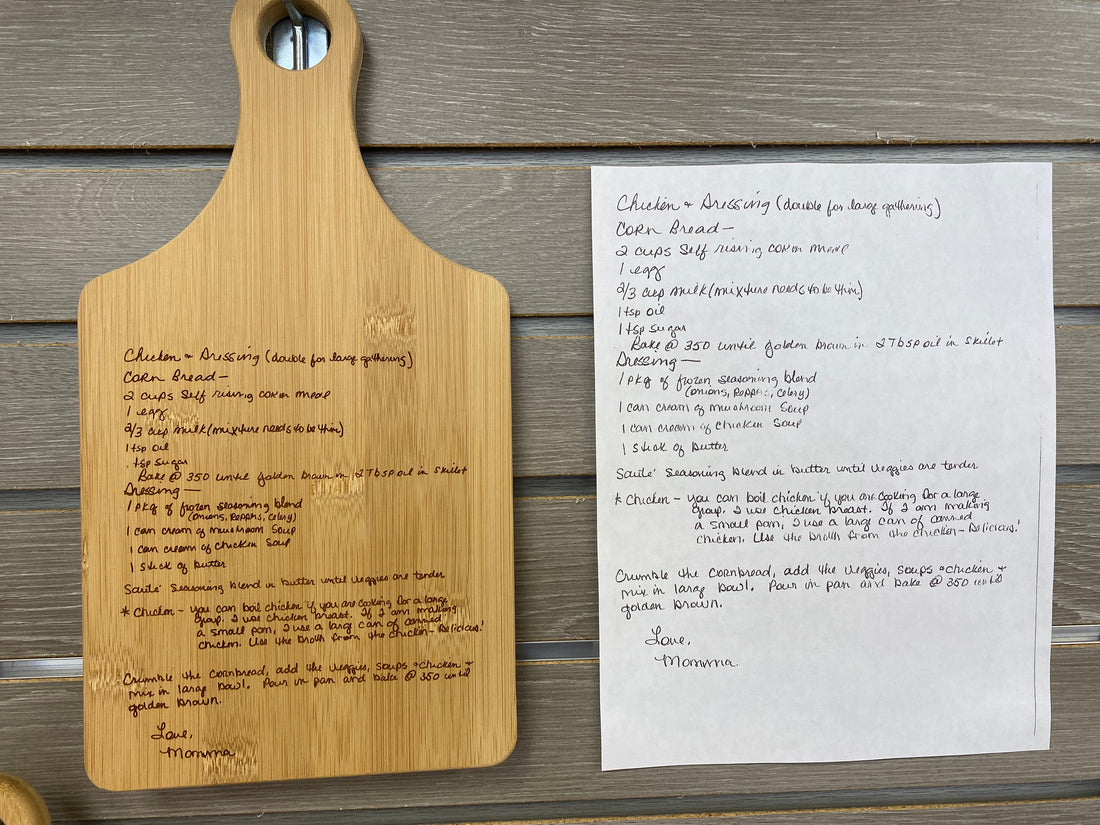 Chicken + Dressing (double for large gathering)
Corn Bread —
2 cups Self rising corn meal
1 egg
2/3 cup milk (mixture needs to be thin)
1 tsp oil
tsp sugar
Bake @ 350 until golden brown in 2 Tbsp oil in skillet
Dressing —
1 pkg of frozen seasoning blend
(onions, peppers, celery)
1 can cream of mushroom soup
1 can cream of chicken soup
1 stick of butter
Sauté seasoning blend in butter until veggies are tender
* Chicken – you can boil chicken if you are cooking for a large
group. I use chicken breast. If I am making
a small pan, I use a large can of canned
chicken. Use the broth from the chicken – Delicious!
Crumble the cornbread, add the veggies, soups + chicken +
mix in large bowl. Pour in pan and bake @ 350 until
golden brown.
Love,
Momma
Chicken + Dressing (double for large gathering)
Corn Bread —
2 cups Self rising corn meal
1 egg
2/3 cup milk (mixture needs to be thin)
1 tsp oil
1 tsp sugar
Bake @ 350 until golden brown in 2 Tbsp oil in skillet
Dressing —
1 pkg of frozen seasoning blend
(onions, peppers, celery)
1 can cream of mushroom soup
1 can cream of chicken soup
1 stick of butter
Sauté seasoning blend in butter until veggies are tender
* Chicken – you can boil chicken if you are cooking for a large
group. I use chicken breast. If I am making
a small pan, I use a large can of canned
chicken. Use the broth from the chicken – Delicious!
Crumble the cornbread, add the veggies, soups + chicken +
mix in large bowl. Pour in pan and bake @ 350 until
golden brown.
Love,
Momma